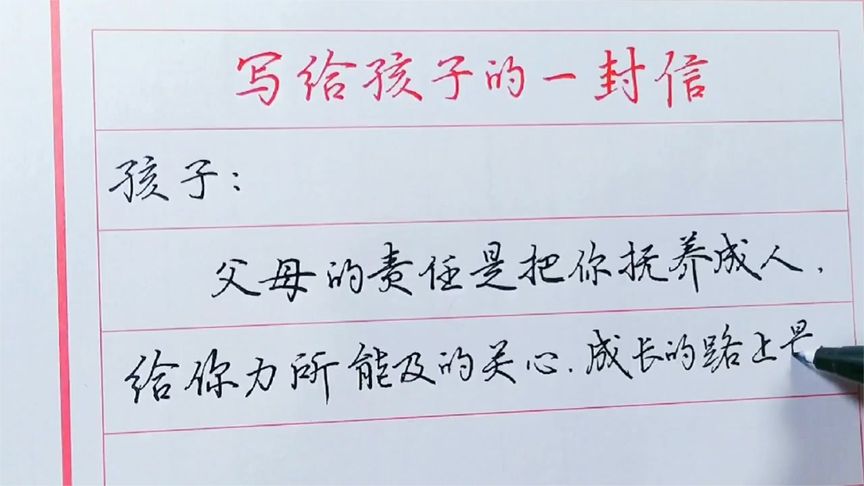 写给孩子的一封信
孩子：
父母的责任是把你抚养成人，
给你力所能及的关心．成长的路上